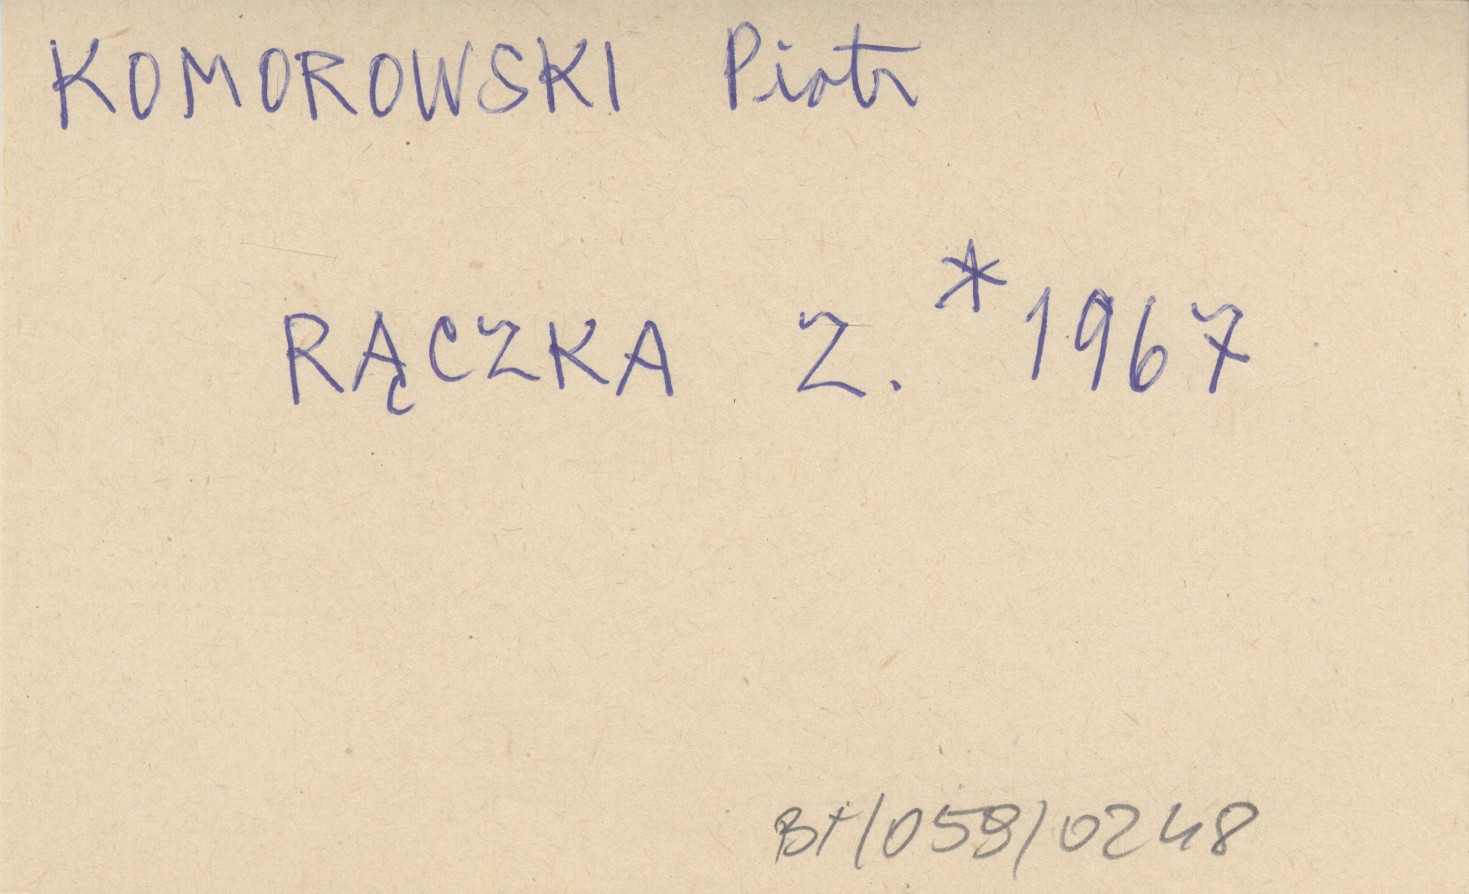 KOMOROWSKI Piotr
RĄCZKA Z. *1967
Bt/059/0248